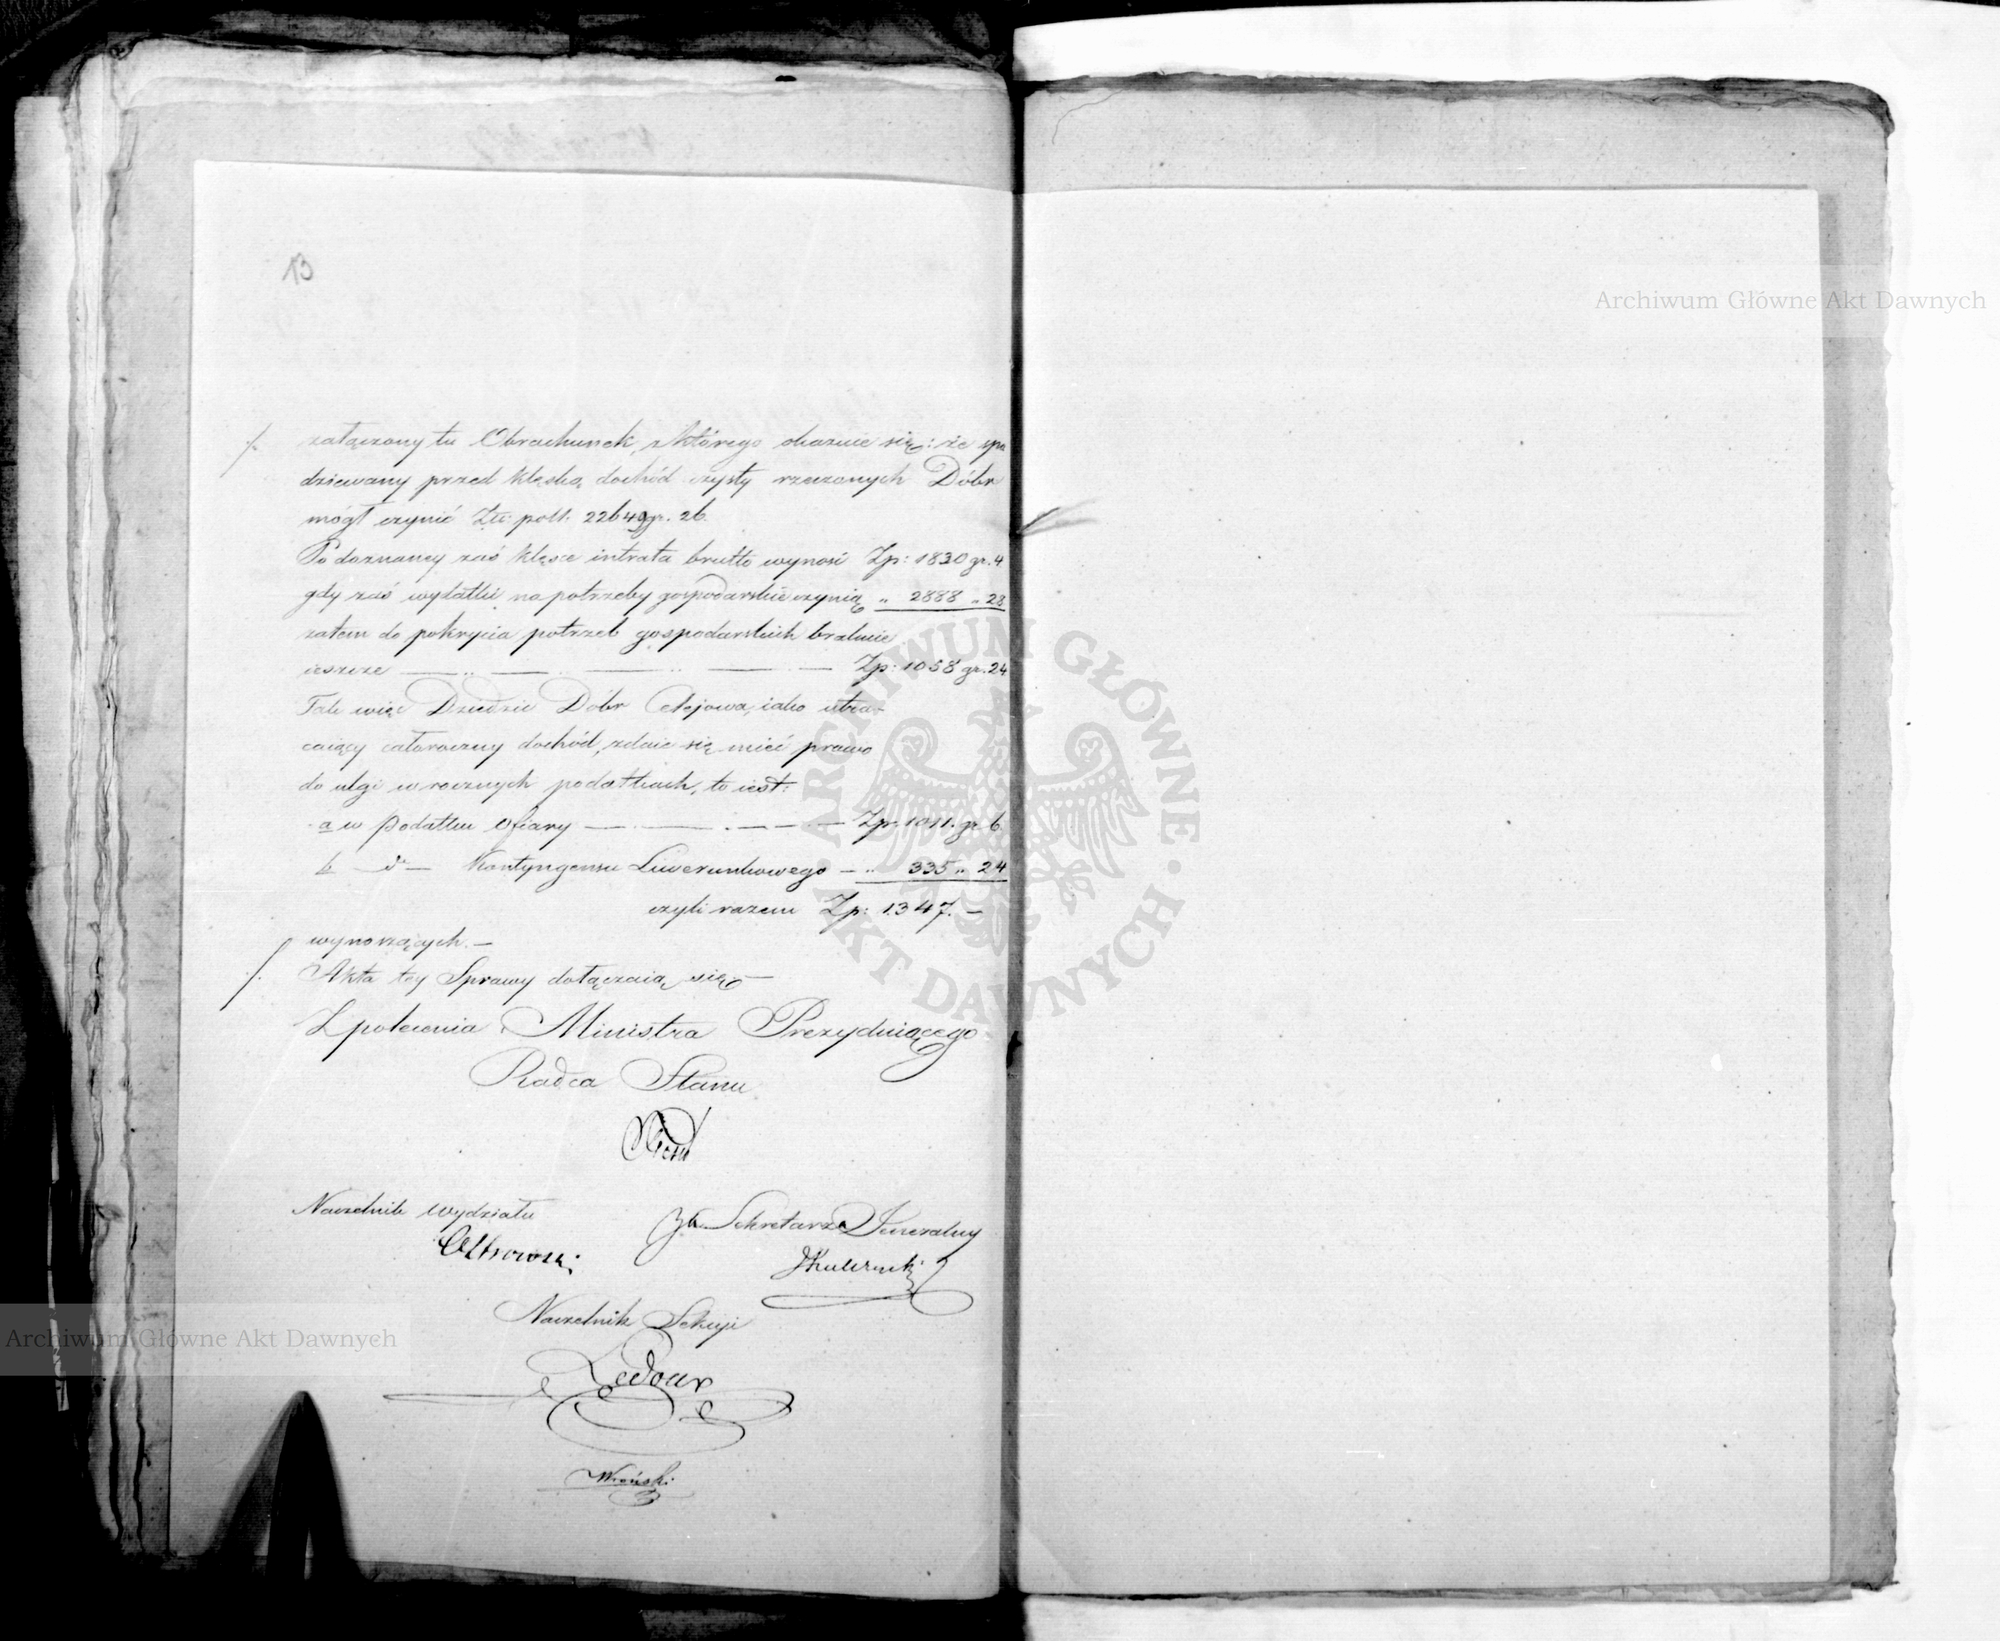 13
./. załączony tu Obrachunek, z którego okazuie się: że spo
dziewany przed klęską dochód czysty rzeczonych Dóbr
mógł czynić Złt: poll. 22649 gr. 26.
Po doznaney zaś klęsce intrata brutto wynosi Zp: 1830 gr. 4
gdy zaś wydatki na potrzeby gospodarskie czynią „ 2888 „ 28
zatem do pokrycia potrzeb gospodarskich brakuie
ieszcze — „ — — „ — Zp: 1058 gr. 24
Tak więc Dziedzic Dóbr iako utra-
caiący całoroczny dochód, zdaie się mieć prawo
do ulgi w rocznych podatkach, to iest:
a w podatku Ofiary — — . — — Zp: 1011. gr 6
b — d° — Kontyngensu Liwerunkowego — „ 335 „ 24
czyli razem Zp: 1347. —
wynoszących. —
./. Akta tey Sprawy dołączaią się —
Z polecenia Ministra Prezyduiącego
Radca Stanu
Naczelnik Wydziału
Sekretarza Jeneralny
Ostrowski
Naczelnik Sekcyi
Ledoux
Wroński
Archiwum Główne Akt Dawnych
Archiwum Główne Akt Dawnych
ARCHIWUM GŁÓWNE AKT DAWNYCH